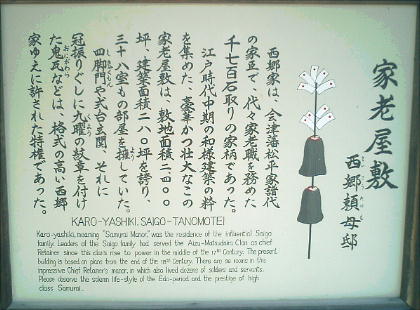 家老屋敷
西郷頼母邸
西郷家は、会津藩松平家譜代
の家臣で、代々家老職を務めた
千七百石取りの家柄であった。
江戸時代中期の和様建築の粋
を集めた、豪華かつ壮大なこの
家老屋敷は、敷地面積二、四〇〇
坪、建築面積二八〇坪を誇り、
三十八室もの部屋を擁していた。
四脚門や式台玄関、それに
冠振りぐしに九曜の紋章を付け
た鬼瓦などは、格式の高い西郷
家ゆえに許された特権であった。
KARO-YASHIKI, SAIGO-TANOMOTEI
Karo-yashiki, meaning "Samurai Manor," was the residence of the influential Saigo
family. Leaders of the Saigo family had served the Aizu-Matsudaira Clan as chief
Retainer since this clan's rise to power in the middle of the 17th Century. The present
building is based on plans from the end of the 18th Century. There are 38 rooms in the
impressive Chief Retainer's manor, in which also lived dozens of soldiers and servants.
Please observe the solemn life-style of the Edo-period and the prestige of high
class Samurai.